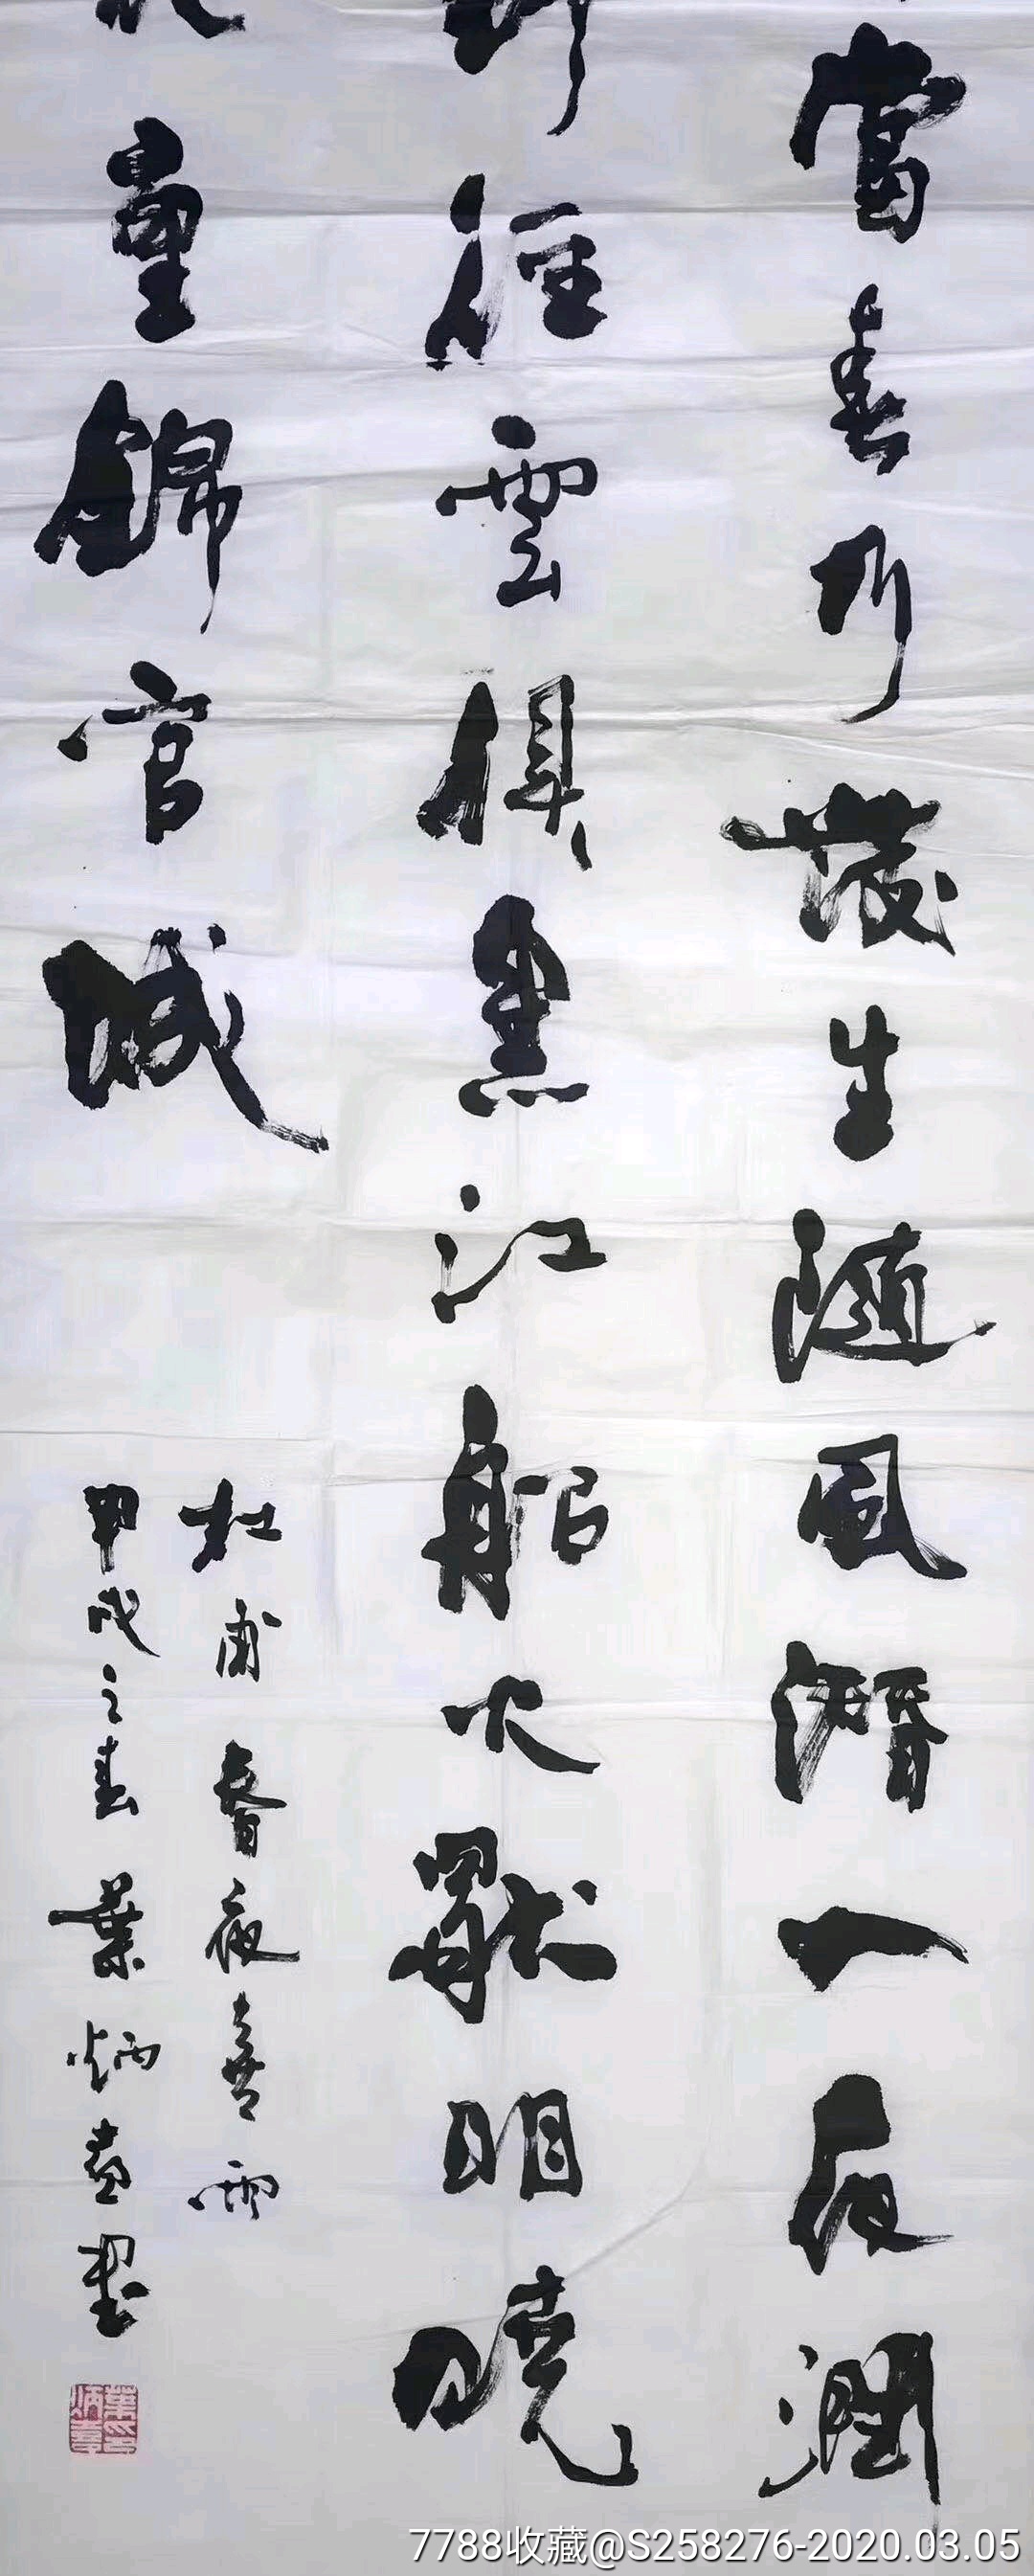 當春乃發生隨風潛入夜潤
徑雲俱黑江船火獨明曉
重錦官城
杜甫春夜喜雨
甲戌之春葉炳書
7788收藏@S258276-2020.03.05